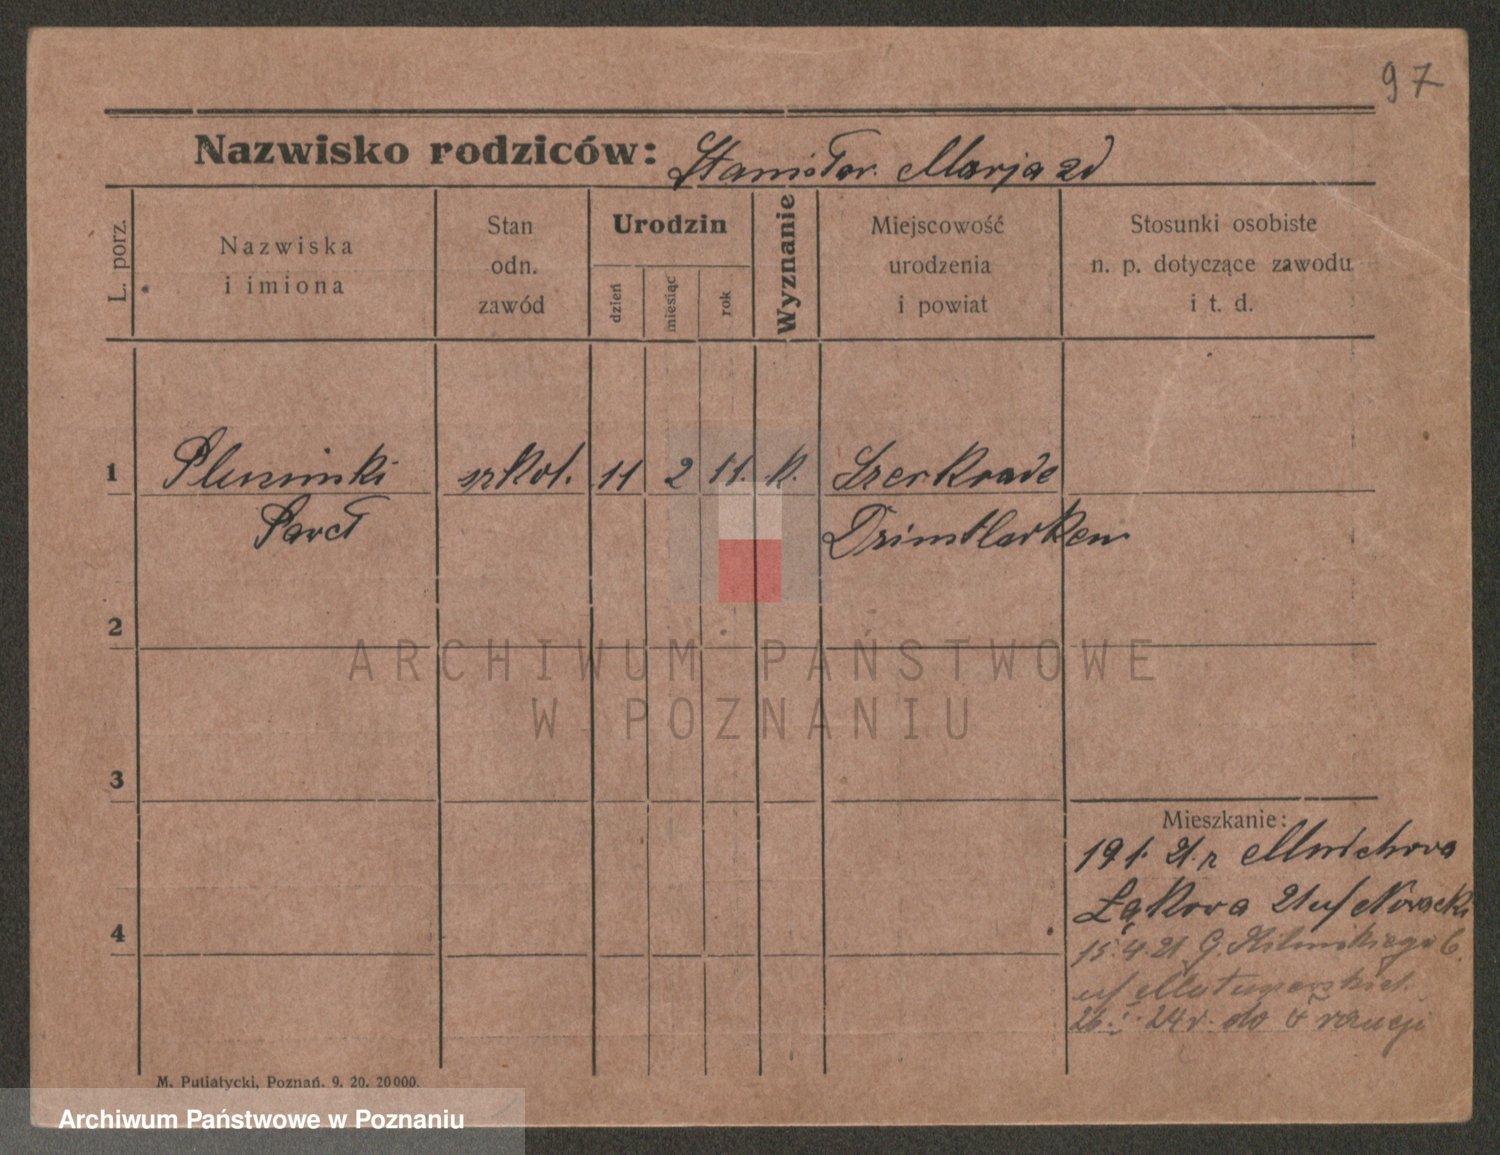 97
Nazwisko rodziców: Stanisław. Marja zd
L. porz.
Nazwiska
i imiona
Stan
odn.
zawód
Urodzin
dzień
miesiąc
rok
Wyznanie
Miejscowość
urodzenia
i powiat
Stosunki osobiste
n. p. dotyczące zawodu
i t. d.
1 szkol. 11 2 11. k. Szerkrade
Paweł
2
3
4
Mieszkanie:
19 1. 21. r
Łąkowa 21 u/ Nowacki
15.4.21 G.
u/
26. 24 r. do Francji
M. Putiatycki, Poznań. 9. 20. 20000.
ARCHIWUM PAŃSTWOWE
W POZNANIU
Archiwum Państwowe w Poznaniu